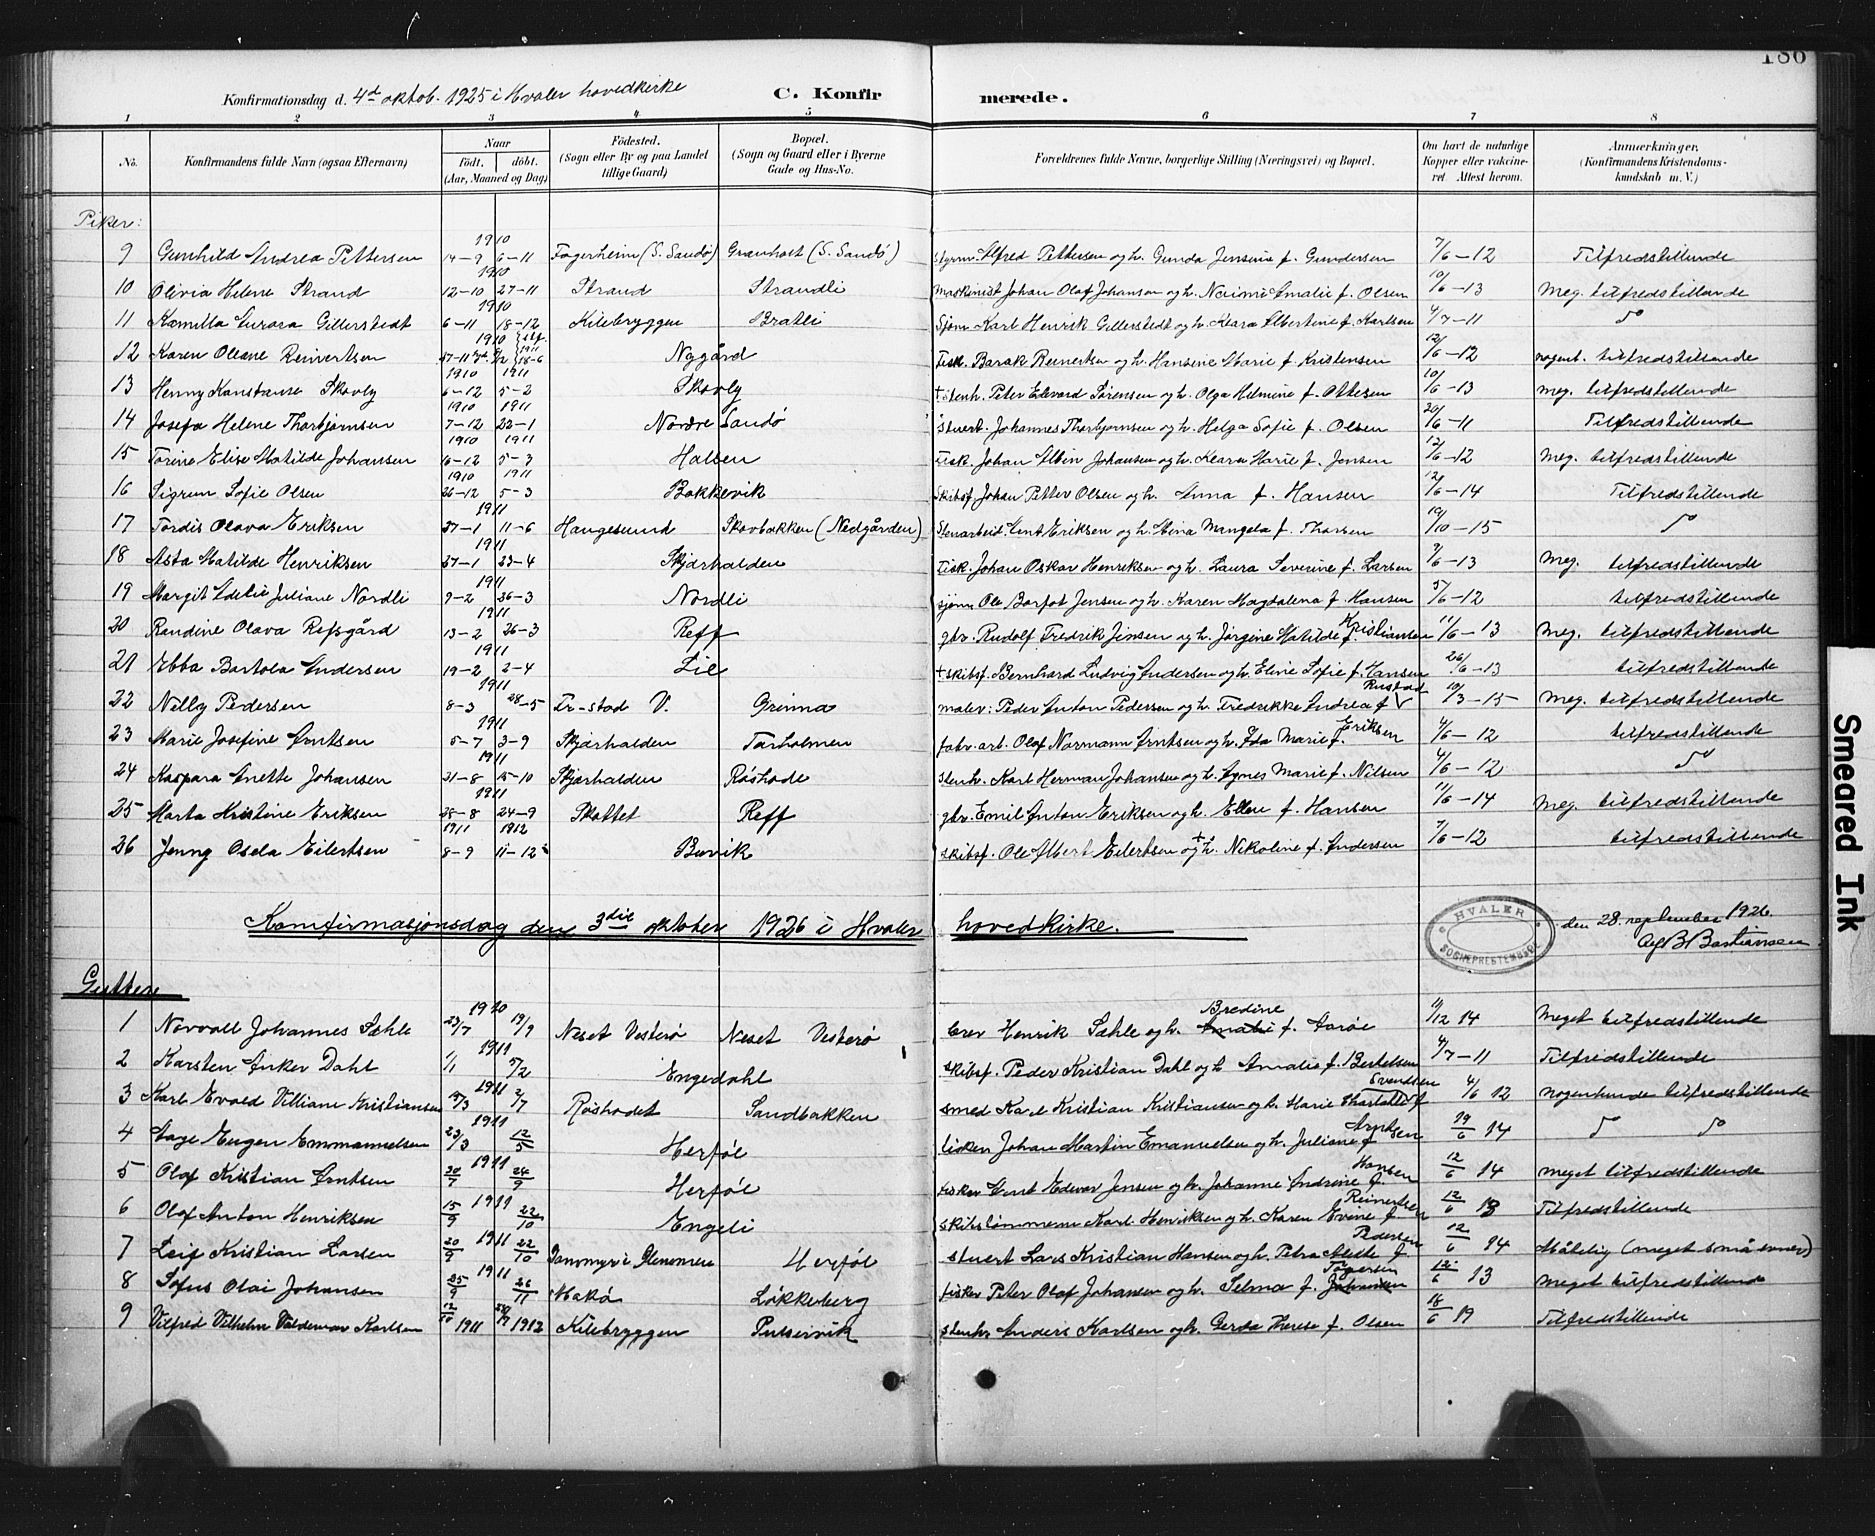 186
Konfirmationsdag d. 4de oktob. 1925 i Hvaler hovedkirke C. Konfirmerede.
1 2 3 4 5 6 7 8
No. Konfirmandens fulde Navn (ogsaa Efternavn) Naar født. døbt. (Aar, Maaned og Dag) Fødested. (Sogn eller By og paa Landet tillige Gaard) Bopæl. (Sogn og Gaard eller i Byerne Gade og Hus-No. Forældrenes fulde Navne, borgerlige Stilling (Næringsvei) og Bopæl. Om havt de naturlige Kopper eller vakcineret. Attest herom. Anmærkninger. (Konfirmandens Kristendomskundskab m. V.)
Piker:
9 Gunhild Andrea Pettersen 1910 14-9 6-11 Fagerheim (S. Sandø) Granholt (S. Sandø) styrm. Alfred Pettersen og h. Gunda Jensine f. Gundersen 7/6-12 Tilfredstillende
10 Olivia Helene Strand 1910 12-10 27-11 Strand Strandli Maskinist Johan Olaf Johansen og h. Amalie f. Olsen 10/6-13 Meg. tilfredstillende
11 Kamilla Aurora Gillerstedt 1910 6-11 18-12 Kilebryggen Bratli Sjøm. Karl Henrik Gillerstedt og h. Klara Albertine f. Karlsen 4/7-11 do
12 Karen Oleane Reinertsen 1910 27-11 1911 18-6 Nygård Fisk. Barak Reinertsen og h. Hansine Marie f. Kristensen 12/6-12 nogent. tilfredstillende
13 Henny Konstanse Skovly 1910 6-12 1911 5-2 Skovly † stenh. Peter Edvard Sørensen og h. Olga Helmine f. Ottesen 10/6-13 meg. tilfredstillende
14 Josefa Helene Thorbjørnsen 1910 7-12 1911 22-1 Nordre Sandø Stuert. Johannes Thorbjørnsen og h. Helga Sofie f. Olsen 20/6-11 Tilfredstillende
15 Torine Elise Matilde Johansen 1910 16-12 1911 5-3 Halsen Fisk. Johan Albin Johansen og h. Klara Marie f. Jensen 12/6-12 Meg. tilfredstillende
16 Sigrun Sofie Olsen 1910 26-12 1911 5-3 Bakkevik Skibsf. Johan Petter Olsen og h. Anna f. Hansen 12/6-14 Tilfredstillende
17 Tordis Olava Eriksen 1911 27-1 11-6 Haugesund Skovbakken (Nedgården) Stenarbeid. Ernt Eriksen og h. Mina Mangela f. Thorsen 19/10-15 do
18 Asta Matilde Henriksen 1911 27-1 23-4 Skjærhalden Fisk. Johan Oskar Henriksen og h. Laura Severine f. Larsen 9/6-13 Meg. tilfredstillende
19 Margit Edelie Juliane Nordli 1911 9-2 26-3 Nordli sjøm Ole Barfot Jensen og h. Karen Magdalena f. Hansen 5/6-12 tilfredstillende
20 Randine Olava Refsgård 1911 13-2 26-3 Reff gbr. Rudolf Fredrik Jensen og h. Jørgine Matilde f. Kristiansen 11/6-13 Meg. tilfredstillende
21 Ebba Bartola Andersen 1911 19-2 2-4 Lie † skibsf. Bernhard Ludvig Andersen og h. Eline Sofie f. Hansen 26/6-13 tilfredstillende
22 Nelly Pedersen 1911 8-3 28-5 Fr-stad V. Grimna maler: Peder Anton Pedersen og h. Fredrikke Andrea f Rustad 10/3-15 Meg. tilfredstillende
23 Marie Josefine Arntsen 1911 5-7 3-9 Skjærhalden Tarholmen fabr. arb. Olaf Normann Arntsen og h. Ida Marie f. Eriksen 4/6-12 tilfredstillende
24 Kaspara Anette Johansen 1911 31-8 15-10 Skjærhalden Røshode stenh. Karl Herman Johansen og h. Agnes Marie f. Nilsen 4/6-12 do
25 Marta Kristine Eriksen 1911 28-8 24-9 Skottet Reff gbr. Emil Anton Eriksen og h. Ellen f. Hansen 11/6-14 Meg. tilfredstillende
26 Jenny Osela Eilertsen 1911 8-9 1912 11-12 Buvik skibsf. Ole Albert Eilertsen og † h. Nikoline f. Andersen 7/6-12 tilfredstillende
Komfirmasjonsdag den 3die oktober 1926 i Hvaler hovedkirke.
HVALER SOGNEPRESTEMBEDE
den 28. september 1926
Alf B Bastiansen
Gutter
1 Norvall Johannes Sæhle 1910 23/7 19/9 Neset Vesterø Neset Vesterø brev Henrik Sæhle og h. Bredine Amalie f. Aarøe 11/12 14 Meget tilfredstillende
2 Karsten Anker Dahl 1911 1/1 5/2 Engedahl skibsf. Peder Kristian Dahl og h Amalie f. Bertelsen 4/7-11 Tilfredstillende
3 Karl Evald Villiam Kristiansen 1911 19/3 2/7 Røishodet Sandbakken smed Karl Kristian Kristiansen og h. Marie Charlotte f Svendsen 4/6 12 nogenlunde tilfredstillende
4 Aage Eugen Emmanuelsen 1911 23/3 12/5 Herføl fisker Johan Martin Emanuelsen og h. Juliane f Arntsen 19/6 14 do do
5 Olaf Kristian Arntsen 1911 30/7 24/9 Herføl fisker Arnt Edvar Jensen og h. Johanne Andrine f Hansen 12/6 14 meget tilfredstillende
6 Olaf Anton Henriksen 1911 15/9 22/10 Engeli skibstømmerm Karl Henriksen og h. Karen Evine f Reinertsen 12/6 13 Tilfredstillende
7 Leif Kristian Larsen 1911 20/9 22/10 Dammyr i Glemmen Herføl stuert Lars Kristian Hansen og h. Petra Alette f Pedersen 12/6 14 Måtelig (meget små evner)
8 Sofus Olai Johansen 1911 25/9 26/11 Makø Løkkeberg fisker Peter Olaf Johansen og h. Selma f. Johansen 12/6 13 meget tilfredstillende
9 Vilfred Vilhelm Valdemar Karlsen 12/10 1911 1912 Kilebryggen Putservik stenhr Anders Karlsen og h. Gerda Therese f. Olsen 18/6 19 Tilfredstillende
Smeared Ink